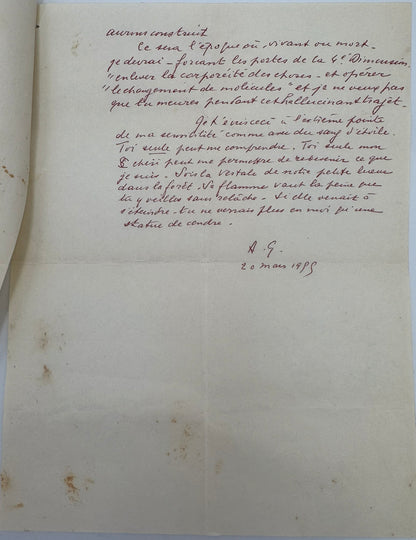 aurons construit
Ce sera l'époque où, vivant ou mort -
je devrai - forçant les portes de la 4e Dimension
"enlever la corporéité des choses - et opérer
"le changement de molécules" et je ne veux pas
que tu meures pendant cet hallucinant trajet.
Je t'écris ceci à l'extrême pointe
de ma sensibilité comme avec du sang d'étoile.
Toi seule peut me comprendre. Toi seule mon
chéri peut me permettre de redevenir ce que
je suis. Sois la vestale de notre petite lueur
dans la forêt. Sa flamme vaut la peine que
tu y veilles sans relâche. Si elle venait à
s'éteindre - tu ne verrais plus en moi qu'une
statue de cendre.
A. G.
20 mars 1955